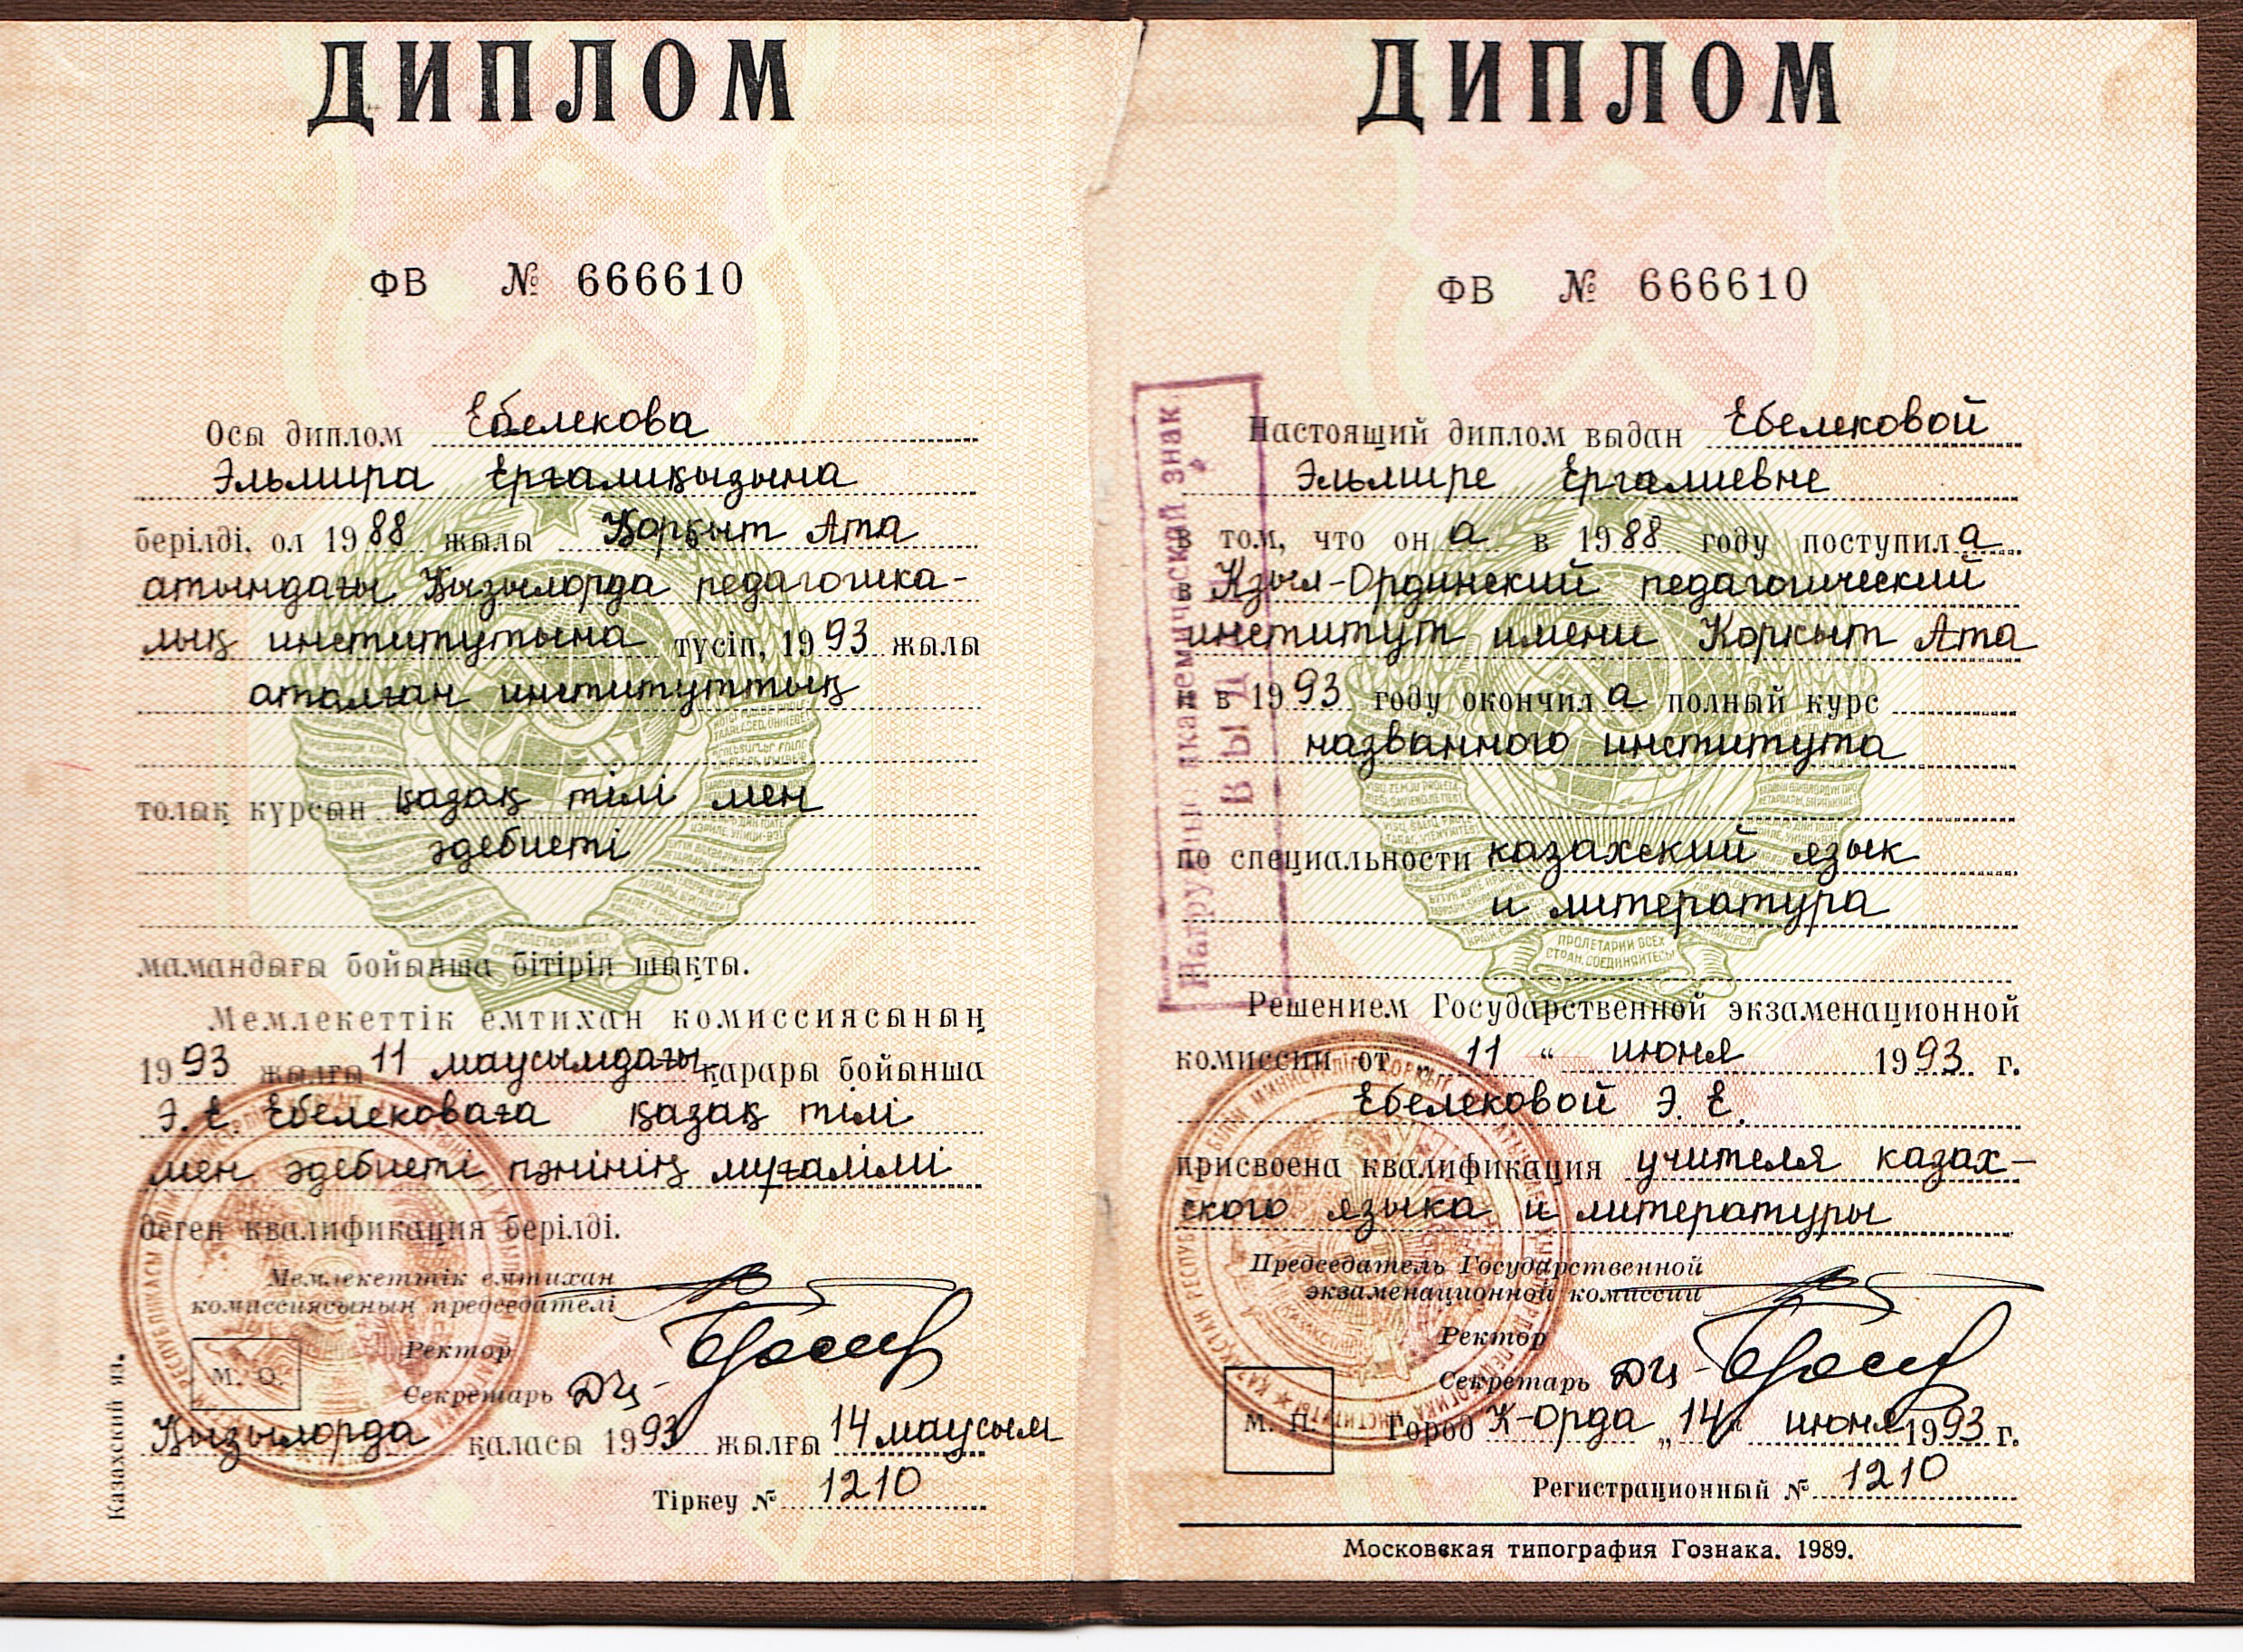 ДИПЛОМ
ФВ № 666610
Осы диплом Ебелекова
Эльмира Ерғалиқызына
берілді, ол 1988 жылы Қорқыт Ата
атындағы Қызылорда педагогика-
лық институтына түсіп, 1993 жылы
аталған институттың
толық курсын қазақ тілі мен
әдебиеті
мамандығы бойынша бітіріп шықты.
Мемлекеттік емтихан комиссиясының
1993 жылғы 11 маусымдағы қарары бойынша
Э. Е Ебелековаға қазақ тілі
мен әдебиеті пәнінің мұғалімі
деген квалификация берілді.
Мемлекеттік емтихан
комиссиясының председателі
Ректор
М. О.
Секретарь
Қызылорда қаласы 1993 жылғы 14 маусым
Тіркеу № 1210
Казахский яз.
ДИПЛОМ
ФВ № 666610
Нагрудный академический знак
ВЫДАН
Настоящий диплом выдан Ебелековой
Эльмире Ергалиевне
в том, что он а в 1988 году поступил а
в Кзыл-Ординский педагогический
институт имени Коркыт Ата
и в 1993 году окончил а полный курс
названного института
по специальности казахский язык
и литература
Решением Государственной экзаменационной
комиссии от „ 11 “ июня 1993 г.
Ебелековой Э. Е.
присвоена квалификация учителя казах-
ского языка и литературы
Председатель Государственной
экзаменационной комиссии
Ректор
Секретарь
М. П.
Город К-Орда „14“ июня 1993 г.
Регистрационный № 1210
Московская типография Гознака. 1989.
ПРОЛЕТАРИИ ВСЕХ
СТРАН, СОЕДИНЯЙТЕСЬ